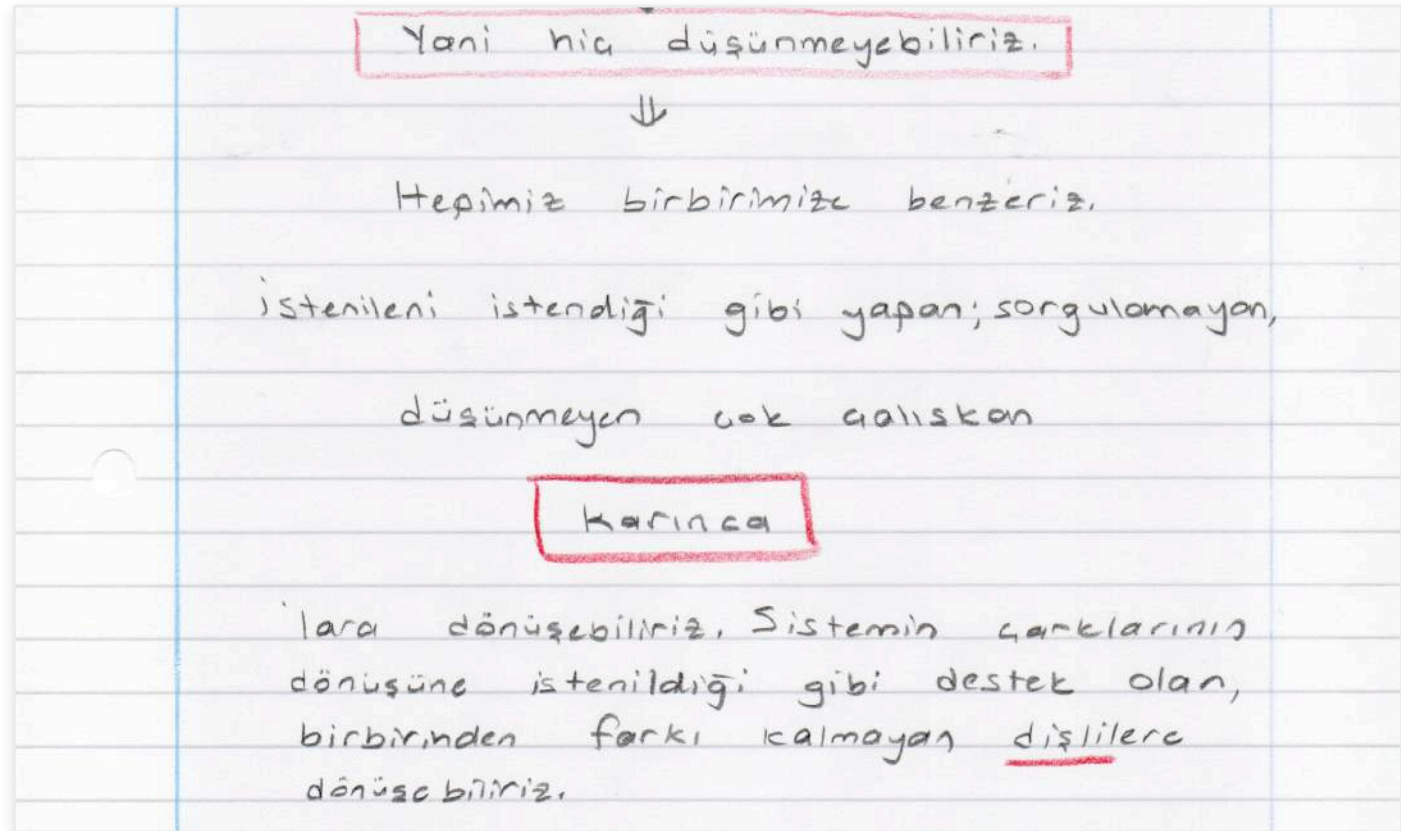 Yani hiç düşünmeyebiliriz.
⇓
Hepimiz birbirimize benzeriz.
İstenileni istendiği gibi yapan; sorgulamayan,
düşünmeyen çok çalışkan
Karınca
lara dönüşebiliriz. Sistemin çarklarının
dönüşüne istenildiği gibi destek olan,
birbirinden farkı kalmayan dişlilere
dönüşebiliriz.